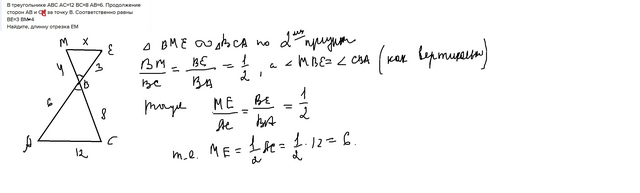 В треугольнике ABC AC=12 BC=8 AB=6. Продолжение
сторон AB и CB за точку B. Соответственно равны
BE=3 BM=4
Найдите, длинну отрезка EM
M x E
4 3
B
6 8
A 12 C
△ BME ∞ △ BCA по 2ому признаку
BM/BC = BE/BA = 1/2, а ∠ MBE = ∠ CBA (как вертикальные)
тогда ME/AC = BE/BA = 1/2
т.е. ME = 1/2 AC = 1/2 · 12 = 6.